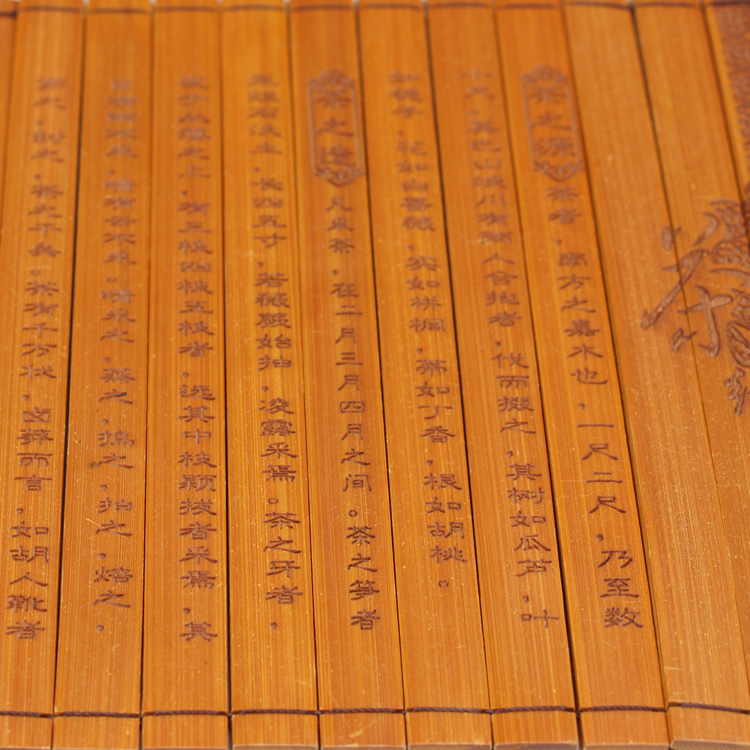 茶
茶之源 茶者，南方之嘉木也，一尺二尺，乃至数
十尺，其巴山峡川有两人合抱者，伐而掇之，其树如瓜芦，叶
如栀子，花如白蔷薇，实如栟榈，蒂如丁香，根如胡桃。
茶之造 凡采茶，在二月三月四月之间。茶之笋者
生烂石沃土，长四五寸，若薇蕨始抽，凌露采焉。茶之牙者，
发于丛薄之上，有三枝四枝五枝者，选其中枝颖拔者采焉，其
日有雨不采，晴有云不采。晴采之，蒸之，捣之，拍之，焙之，
穿之，封之，茶之干矣。茶有千万状，卤莽而言，如胡人靴者